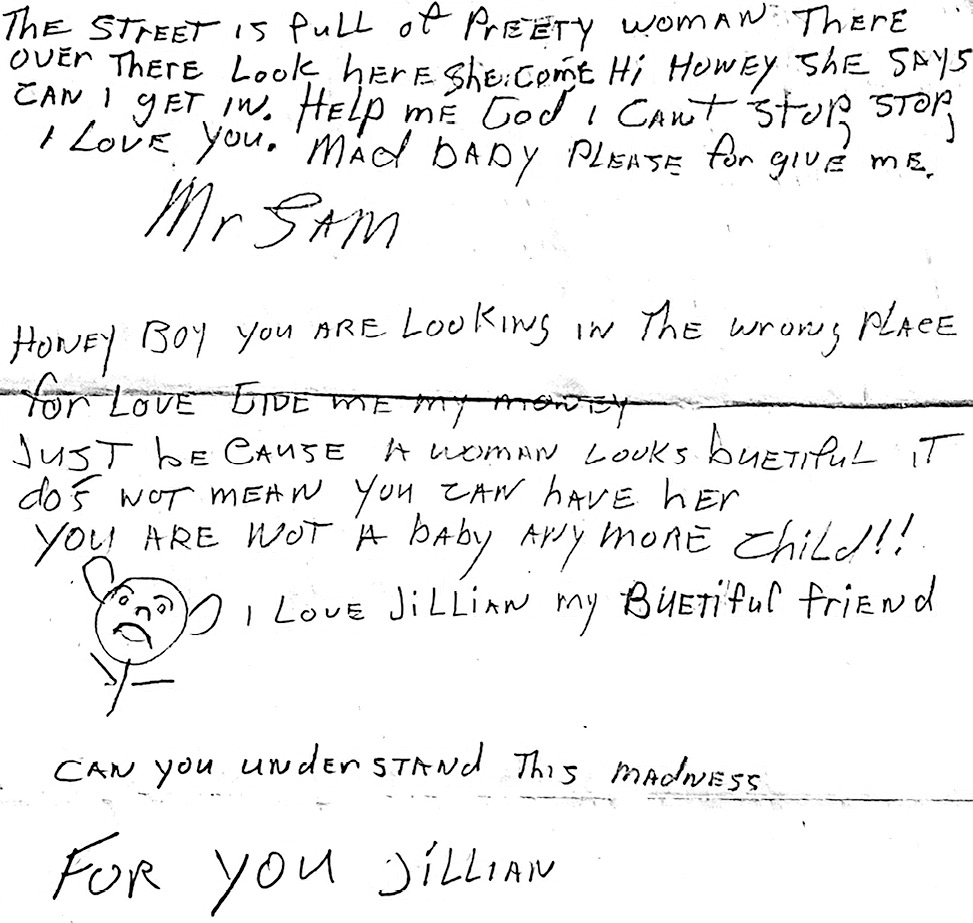 THE STREET IS fULL of PREETY WOMAN THERE
OVER THERE Look hERE ShE:COME Hi HOWEY SHE SAYS
CAN I gET IN. HELP ME God I CANT STOP, STOP,
I LOVE YOU. MAd DADY PLEASE for gIVE ME.
Mr SAM
HONEY BOY YOU ARE LOOKING IN The wrong PLACE
for LOVE GIVE ME MY MONEY
JUST bE CAUSE A WOMAN LOOKS bUETIfUL IT
doS NOT MEAN YOU CAN hAVE hEr
YOU ARE NOT A bAby ANY MORE Child!!
I LOVE JiLLIAN my BUETifUl friENd
CAN you UNdErSTANd This MAdNESS
FOR YOU JiLLIAN